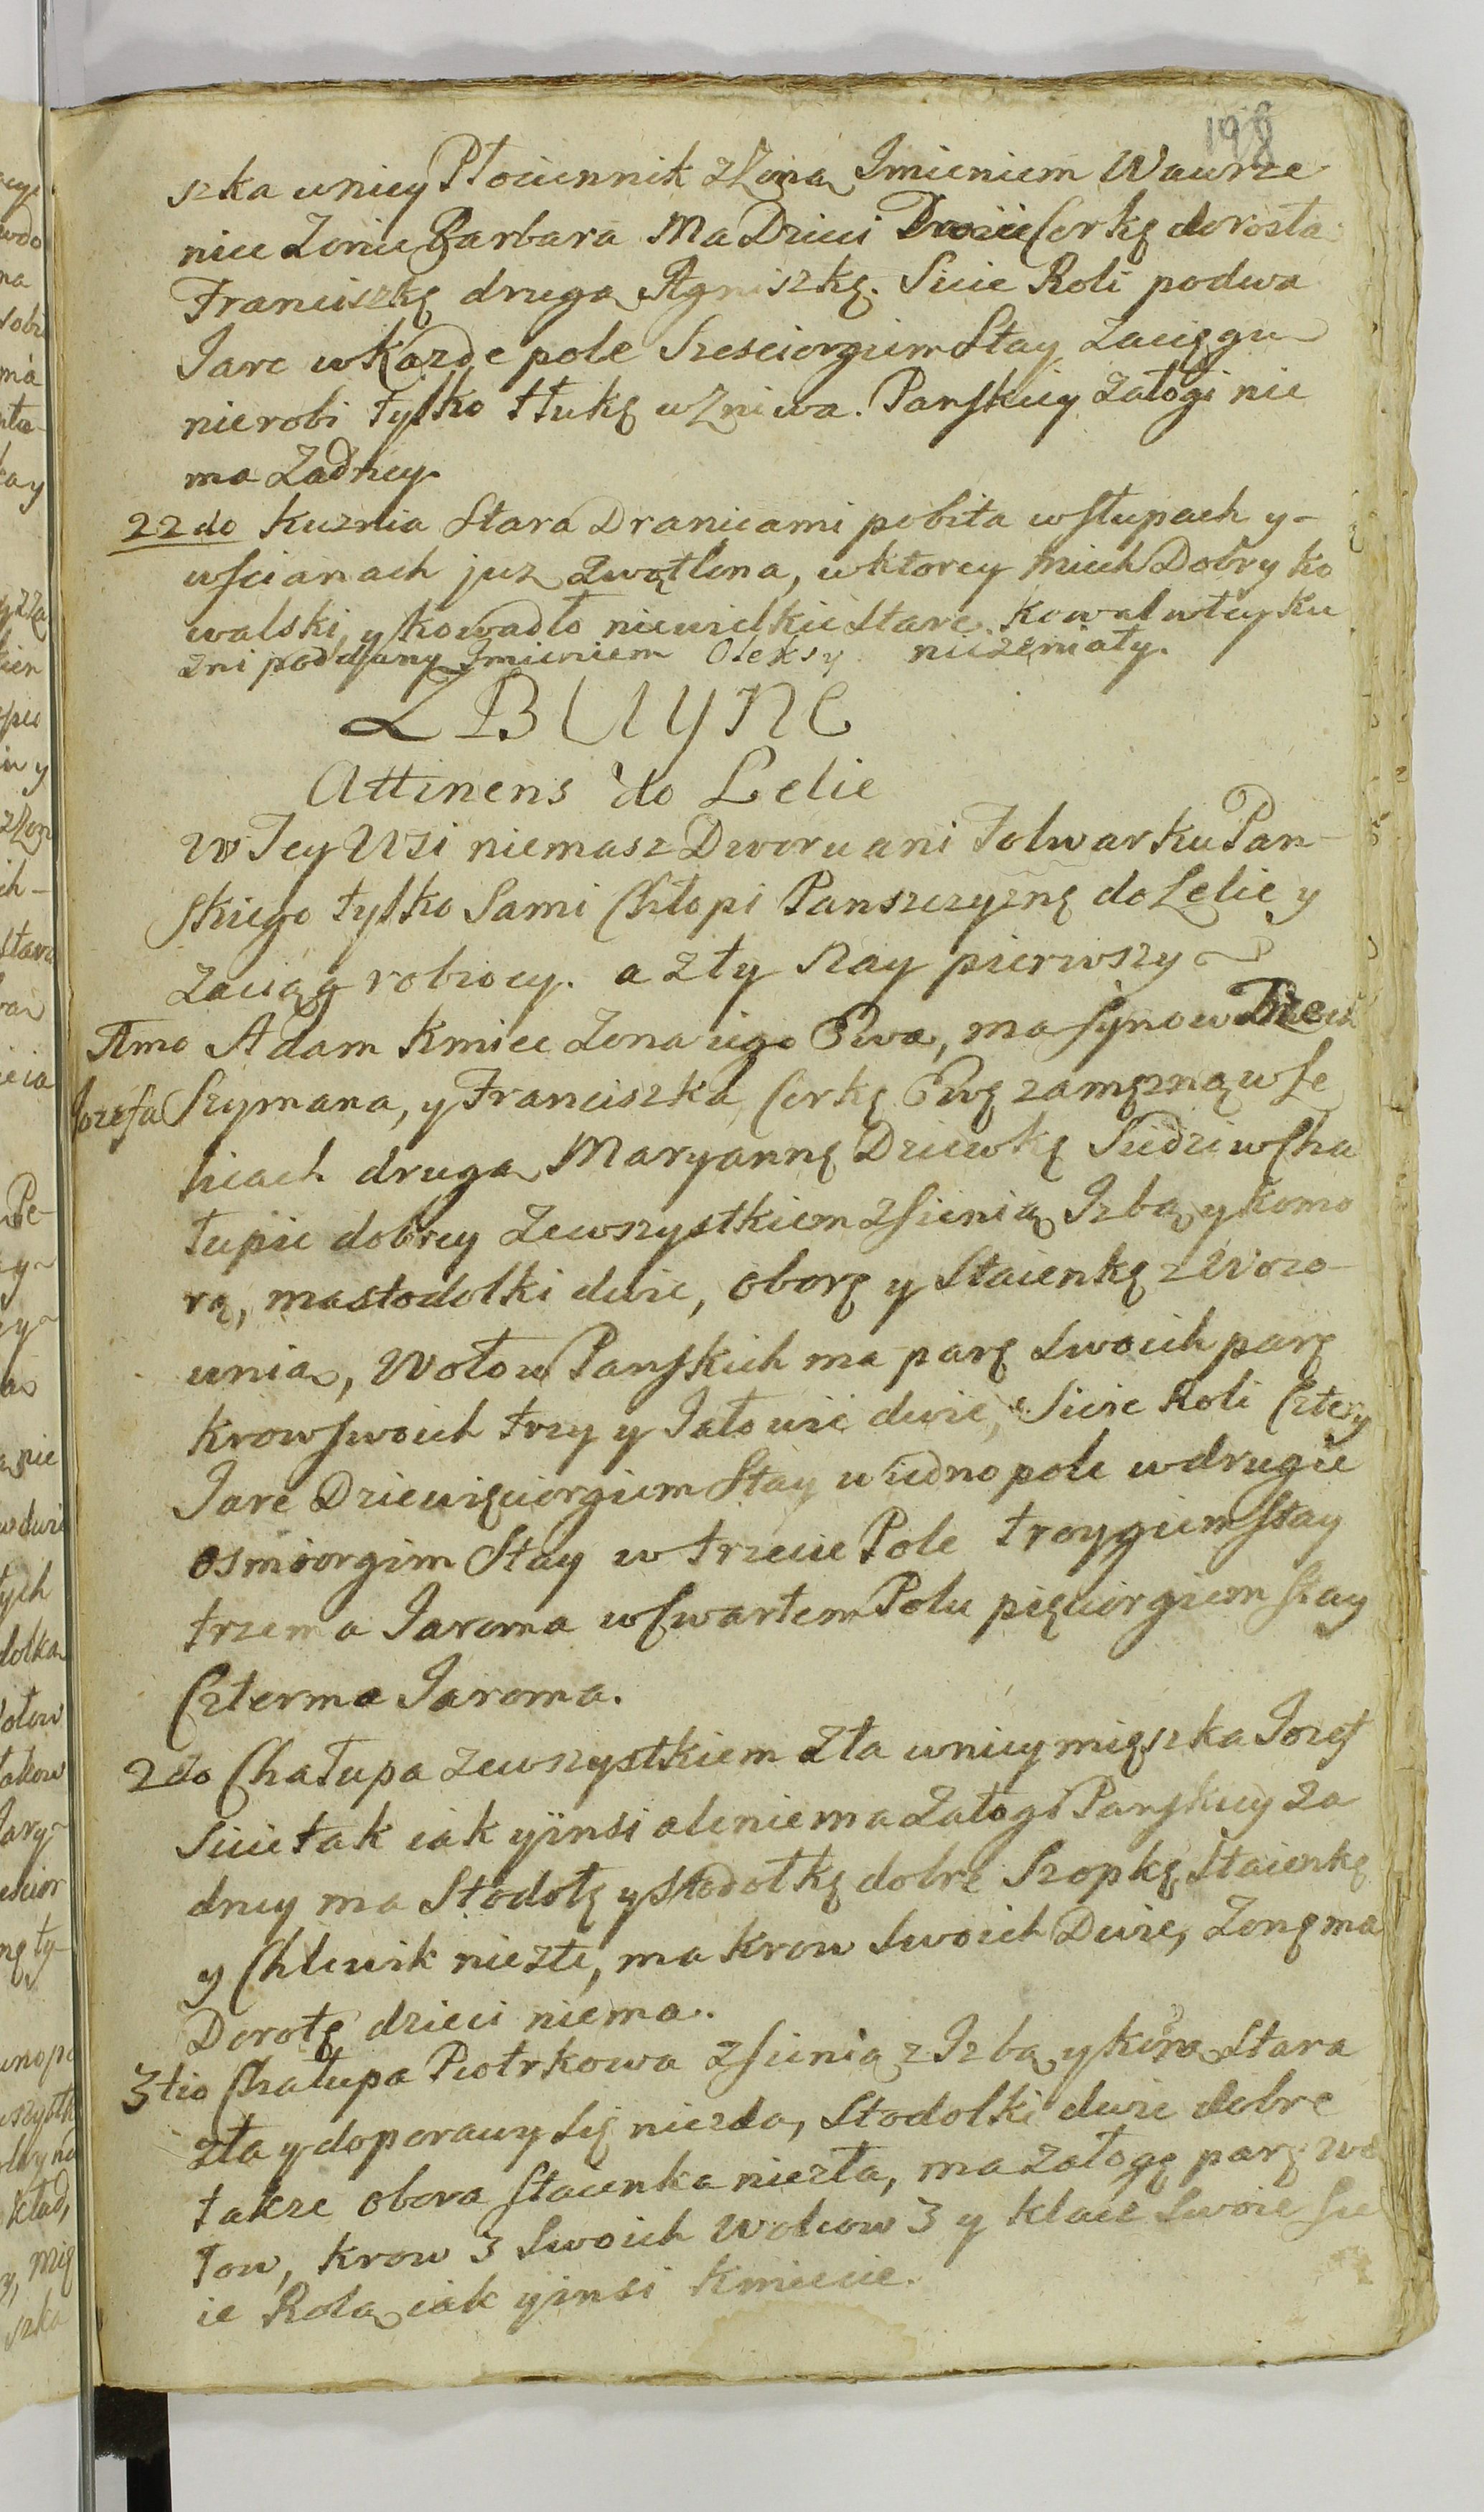 198
szka wniey Płociennik zZoną Imieniem Wawrze
niec Zonie Barbara Ma Dzieci Dwoie Corkę dorosła
Franciszkę drugą Agniszkę. Sieie Roli podwa
Jare w Kazde pole Szesciorgiem Stay Zacięgu
nierobi tylko tłukę w Zniwa. Panskiey załogi nie
ma Zadney.
22do Kuznia Stara Dranicami pobita w słupach y-
wscianach juz Zwątlona, wktorey Miech Dobry ko
walski, y kowadło niewielkie stare. Kowal wtey Ku
zni poddany Imieniem Olexsy niezeniały.
ZBUYNE
Attinens do Lelic
W Tey Wsi niemasz Dworu ani Folwarku Pan-
skiego tylko Sami Chłopi Panszczyznę do Lelic y
Zaciąg robiocy. a z ty Nay pierwszy
Amo Adam Kmiec Zona iego Ewa, ma synow Trzech
Jozefa Szymana, y Franciszka, Corkę Ewę zamęzną w Le
licach drugą Maryannę Dziewkę Siedzi w Cha
łupie dobrey Zewszystkiem z sienią Izbą y komo
rą, ma stodolki dwie, oborę y Staienkę z Wozo
wnią, Wołow Panskich ma parę swoich parę
krow swoich trzy y Jałowic dwie, Sieie Roli Cztery
Jare Dziewięciorgiem Stay w iedno pole w drugie
osmiorgim Stay w trzecie Pole troygiem stay
trzema Jaroma w Cwartem Polu pięciorgiem stay
Czterma Jaroma.
2do Chałupa Zewszystkiem zła wniey mięszka Jozef
Sieie tak iak y insi ale niema Załogi Panskiey Za
dney ma Stodołę y stodołkę dobrę Szopkę Staienkę
y Chlewik niezłe, ma krow swoich Dwie, Zonę ma
Dorotę dzieci niema.
3tio Chałupa Piotrkowa z sienią z Izbą y komorą Stara
zła y do porawy się niezda, Stodolki dwie dobre
także obora staienka niezła, ma załogę parę wo
łow, krow 3 swoich wolcow 3 y klacz swoie sie
ie Rolą iak y insi Kmiecie.